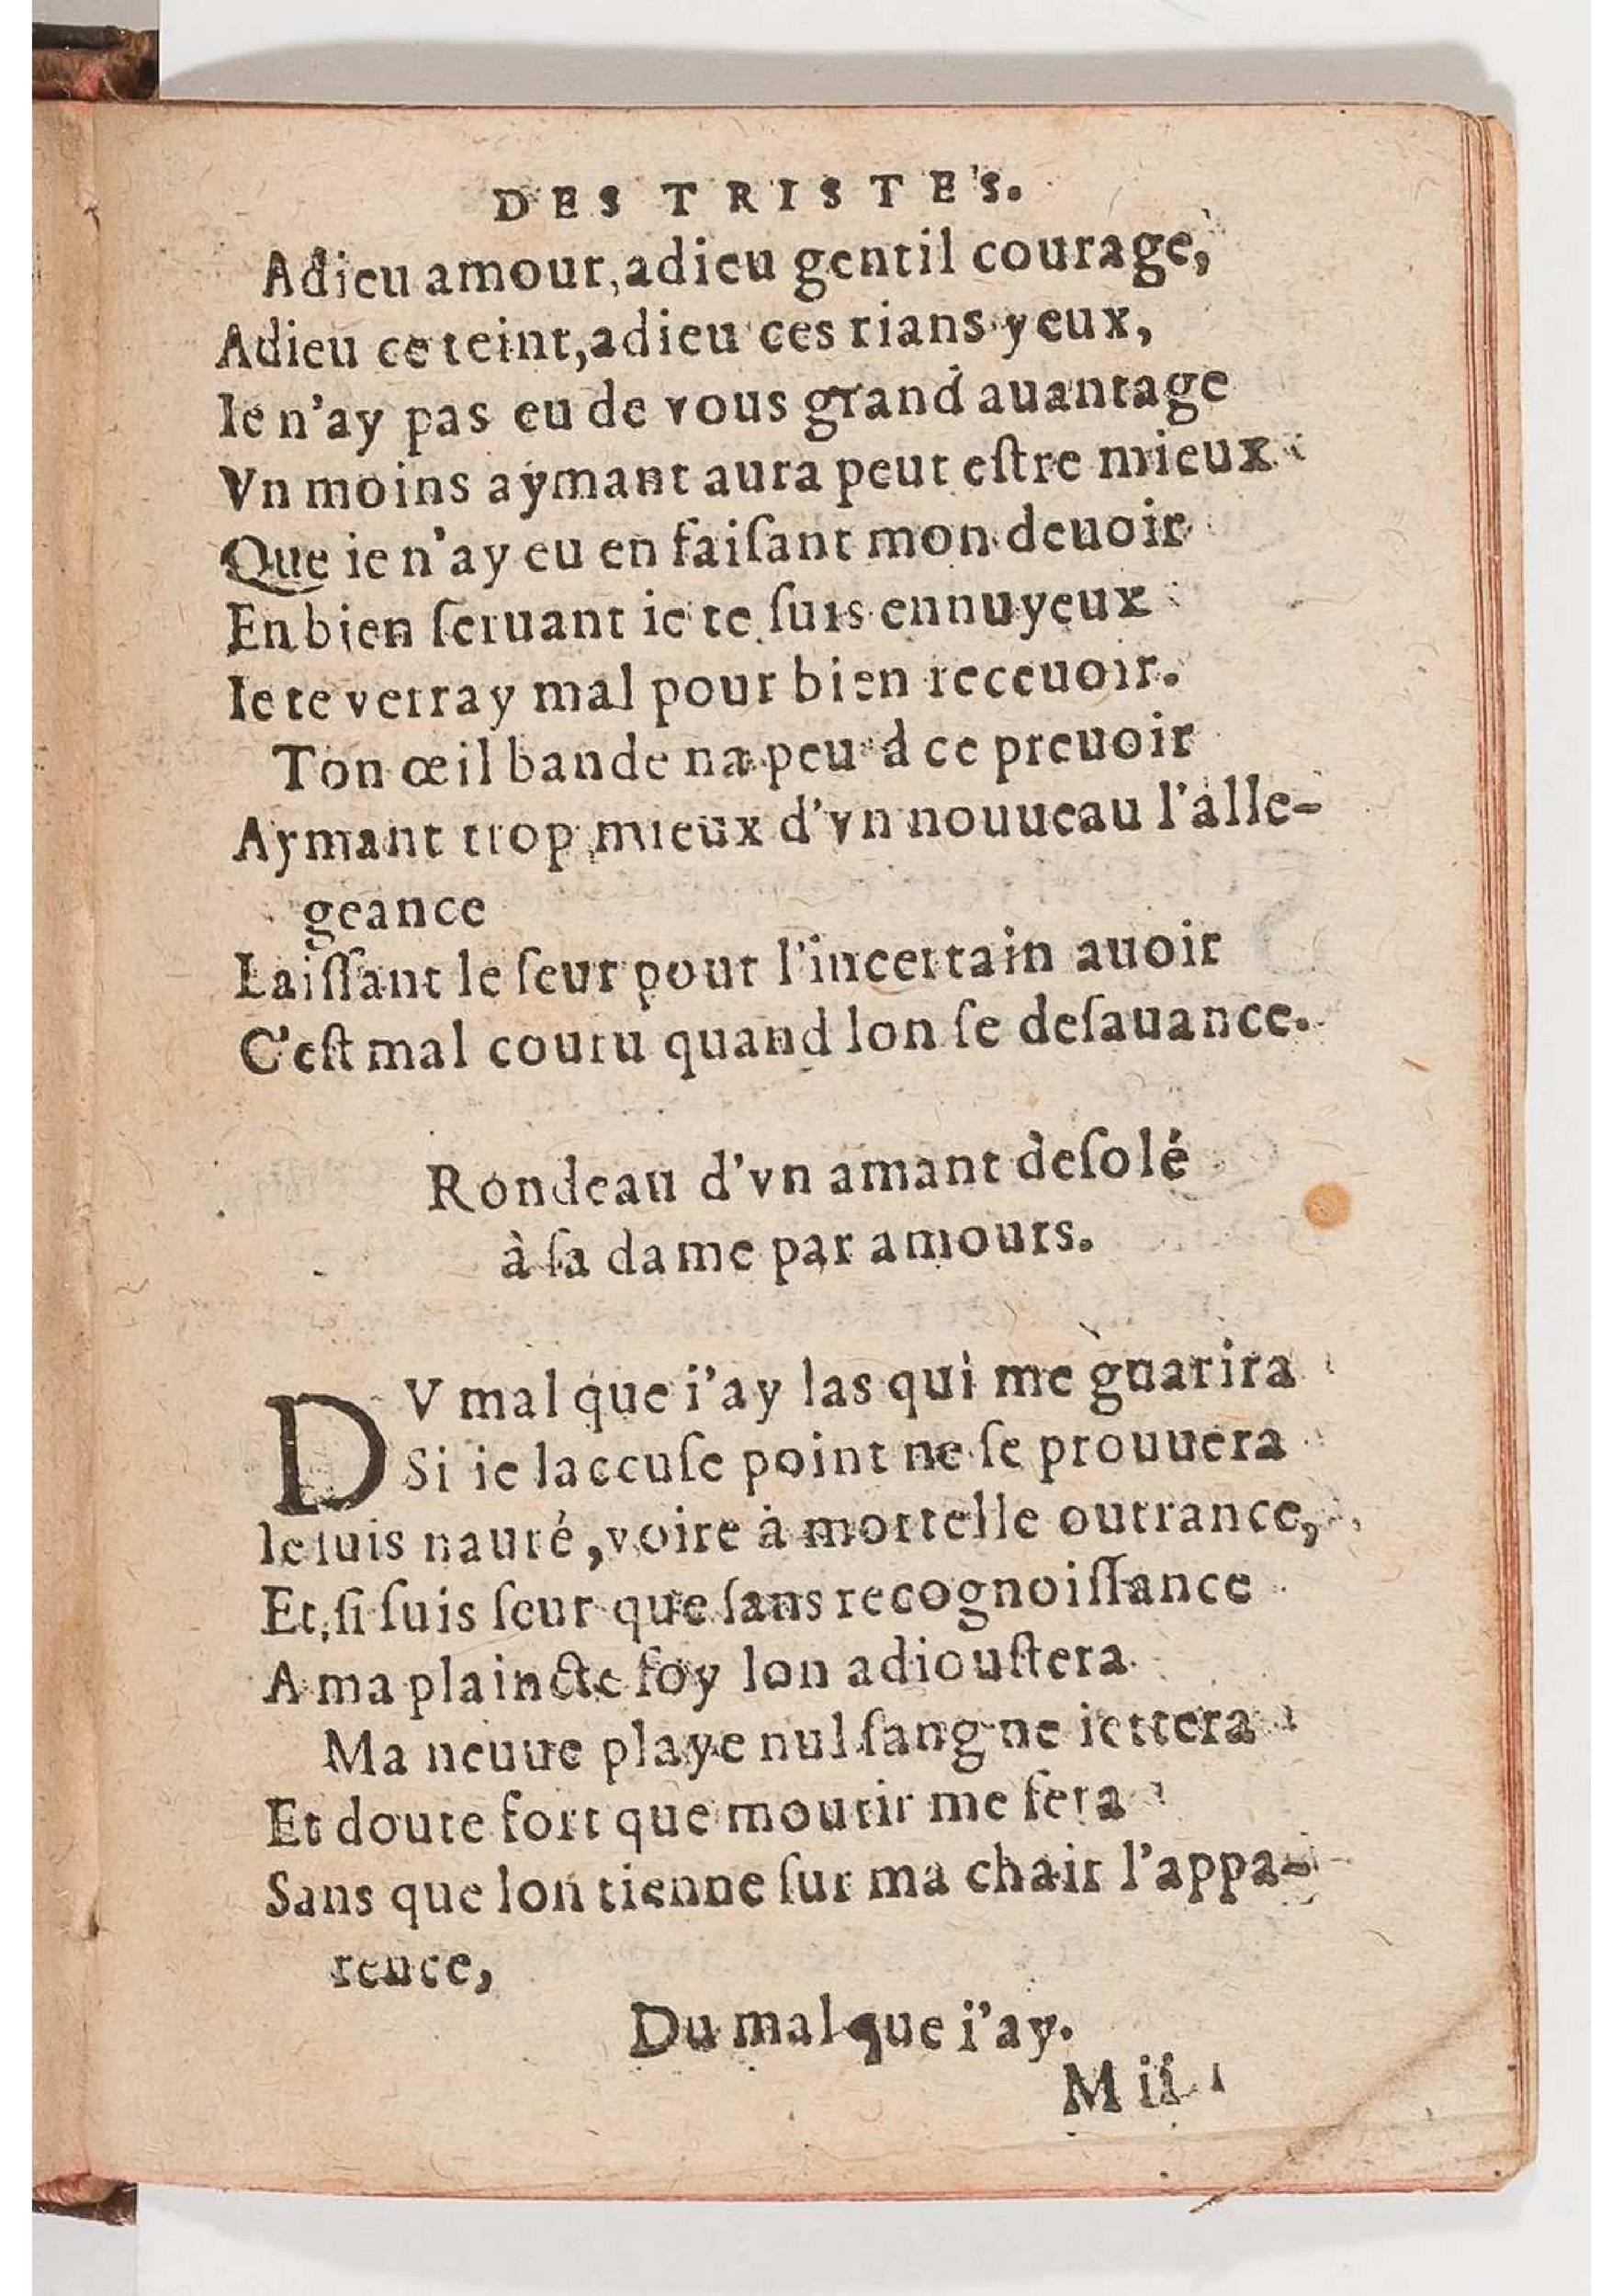 DES TRISTES.
Adieu amour, adieu gentil courage,
Adieu ce teint, adieu ces rians yeux,
Ie n'ay pas eu de vous grand auantage
Vn moins aymant aura peut eſtre mieux
Que ie n'ay eu en faiſant mon deuoir
En bien ſeruant ie te ſuis ennuyeux
Ie te verray mal pour bien receuoir.
Ton œil bande na peu à ce preuoir
Aymant trop mieux d'vn nouueau l'alle-
geance
Laiſſant le ſeur pour l'incertain auoir
C'eſt mal couru quand lon ſe deſauance.
Rondeau d'vn amant deſolé
à ſa dame par amours.
DV mal que i'ay las qui me guarira
Si ie laccuſe point ne ſe prouuera
Ie ſuis nauré, voire à mortelle outrance,
Et, ſi ſuis ſeur que ſans recognoiſſance
A ma plaincte foy lon adiouſtera
Ma neuue playe nul ſang ne iettera
Et doute fort que mourir me fera
Sans que lon tienne ſur ma chair l'appa-
rence,
Du mal que i'ay.
M ii